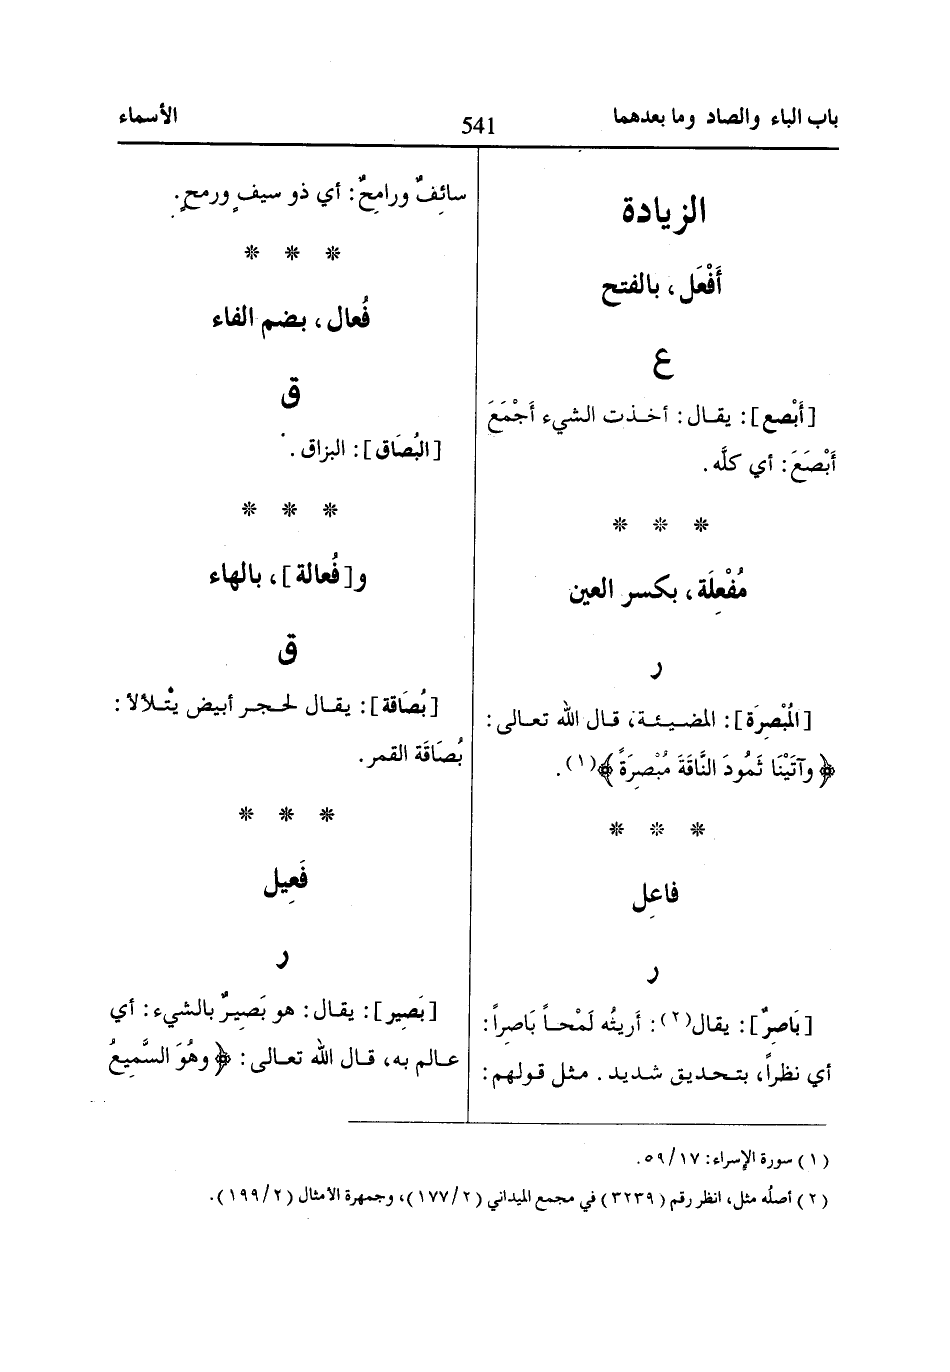 باب الباء والصاد وما بعدهما
541
الأسماء
الزيادة
أَفْعَل، بالفتح
ع
[أَبْصع]: يقال: أخذت الشيء أَجْمَعَ
أَبْصَعَ: أي كلَّه.
* * *
مُفْعِلَة، بكسر العين
ر
[المُبْصِرَة]: المضيئة، قال الله تعالى:
﴿وآتَيْنَا ثَمُودَ النَّاقَةَ مُبْصِرَةً﴾(١).
* * *
فاعِل
ر
[بَاصرٌ]: يقال(٢): أريتُه لَمْحاً بَاصِراً:
أي نظراً، بتحديق شديد. مثل قولهم:
سائِفٌ ورامِحٌ: أي ذو سيفٍ ورمحٍ.
* * *
فُعال، بضم الفاء
ق
[البُصَاق]: البزاق.
* * *
و[فُعالة]، بالهاء
ق
[بُصَاقة]: يقال لحجر أبيض يتْلألأ:
بُصَاقَة القمر.
* * *
فَعِيل
ر
[بَصِير]: يقال: هو بَصِيرٌ بالشيء: أي
عالم به، قال الله تعالى: ﴿وهُوَ السَّمِيعُ
(١) سورة الإسراء: ١٧/ ٥٩.
(٢) أصلُه مثل، انظر رقم (٣٢٣٩) في مجمع الميداني (٢/ ١٧٧)، وجمهرة الأمثال (٢/ ١٩٩).